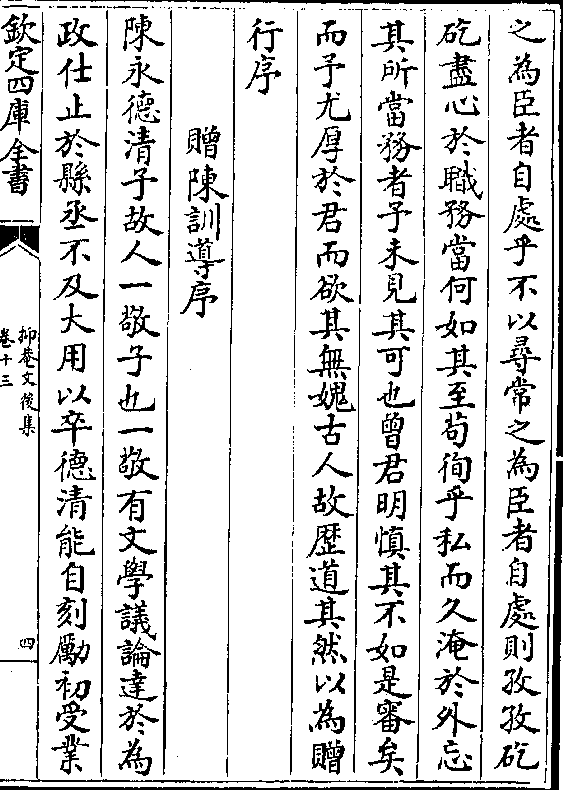 之為臣者自處乎不以尋常之為臣者自處則孜孜矻
矻盡心於職務當何如其至苟徇乎私而久淹於外忘
其所當務者予未見其可也曾君明慎其不如是審矣
而予尤厚於君而欲其無媿古人故歴道其然以為贈
行序
贈陳訓導序
陳永德清予故人一敬子也一敬有文學議論達於為
政仕止於縣丞不及大用以卒德清能自刻勵初受業
欽定四庫全書
抑菴文後集
卷十三
四